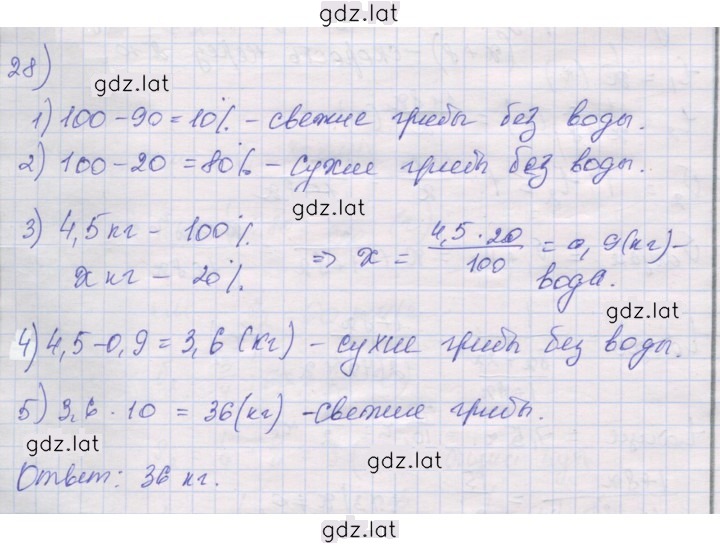 gdz.lat
28)
gdz.lat
1) 100 - 90 = 10% - свежие грибы без воды.
2) 100 - 20 = 80% - сухие грибы без воды.
gdz.lat
3) 4,5 кг - 100%
x кг - 20%
=> x = 4,5 · 20 / 100 = 0,9 (кг) -
вода.
gdz.lat
4) 4,5 - 0,9 = 3,6 (кг) - сухие грибы без воды.
5) 3,6 · 10 = 36 (кг) - свежие грибы.
gdz.lat
gdz.lat
Ответ: 36 кг.
gdz.lat